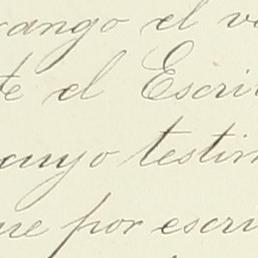 rango el ve
te el Escri
cuyo testim
ue por escri